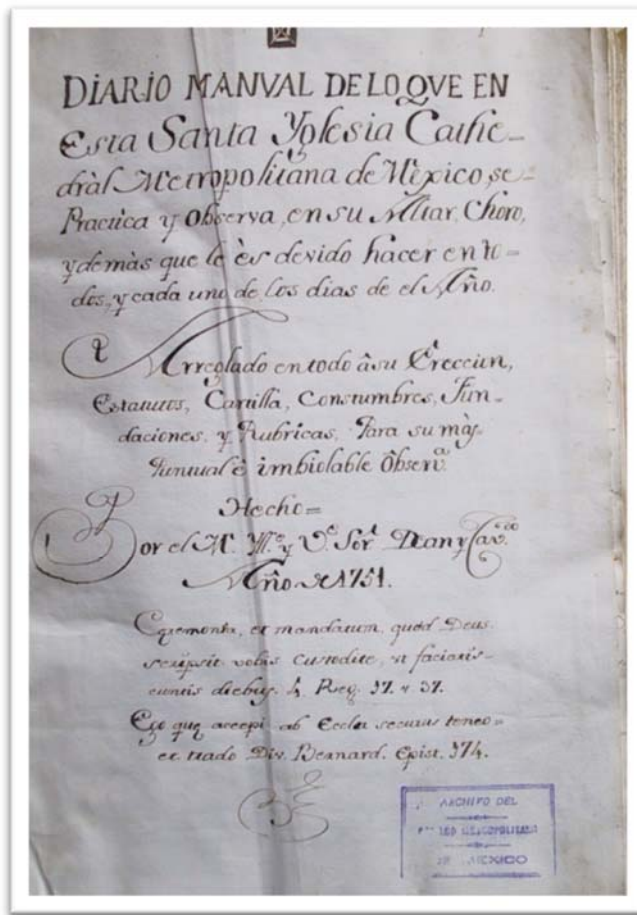 DIARIO MANVAL DE LO QVE EN
Esta Santa Yglesia Cathe-
dràl Metropolitana de Mèxico, se
Practica y Observa, en su Altar, Choro,
y demàs que le ès devido hacer en to-
dos, y cada uno de los dias de el Año.
Arreglado en todo â su Ereccion,
Estatutos, Cartilla, Constumbres, Fun-
daciones, y Rubricas, Para su màs
Puntual è imbiolable Observ.ª
Hecho=
Por el M. Y.e y V.e Sor. Dean y Cav.do
Año de 1751.
Ceremonia, et mandatum, quod Deus
scripsit vobis custodite, ut faciatis
cunctis diebus. 4. Reg. 17. v. 37.
Ego que accepi ab Eccla securus teneo=
et trado Div. Bernard. Epist. 174.
ARCHIVO DEL
METROPOLITANO
MEXICO